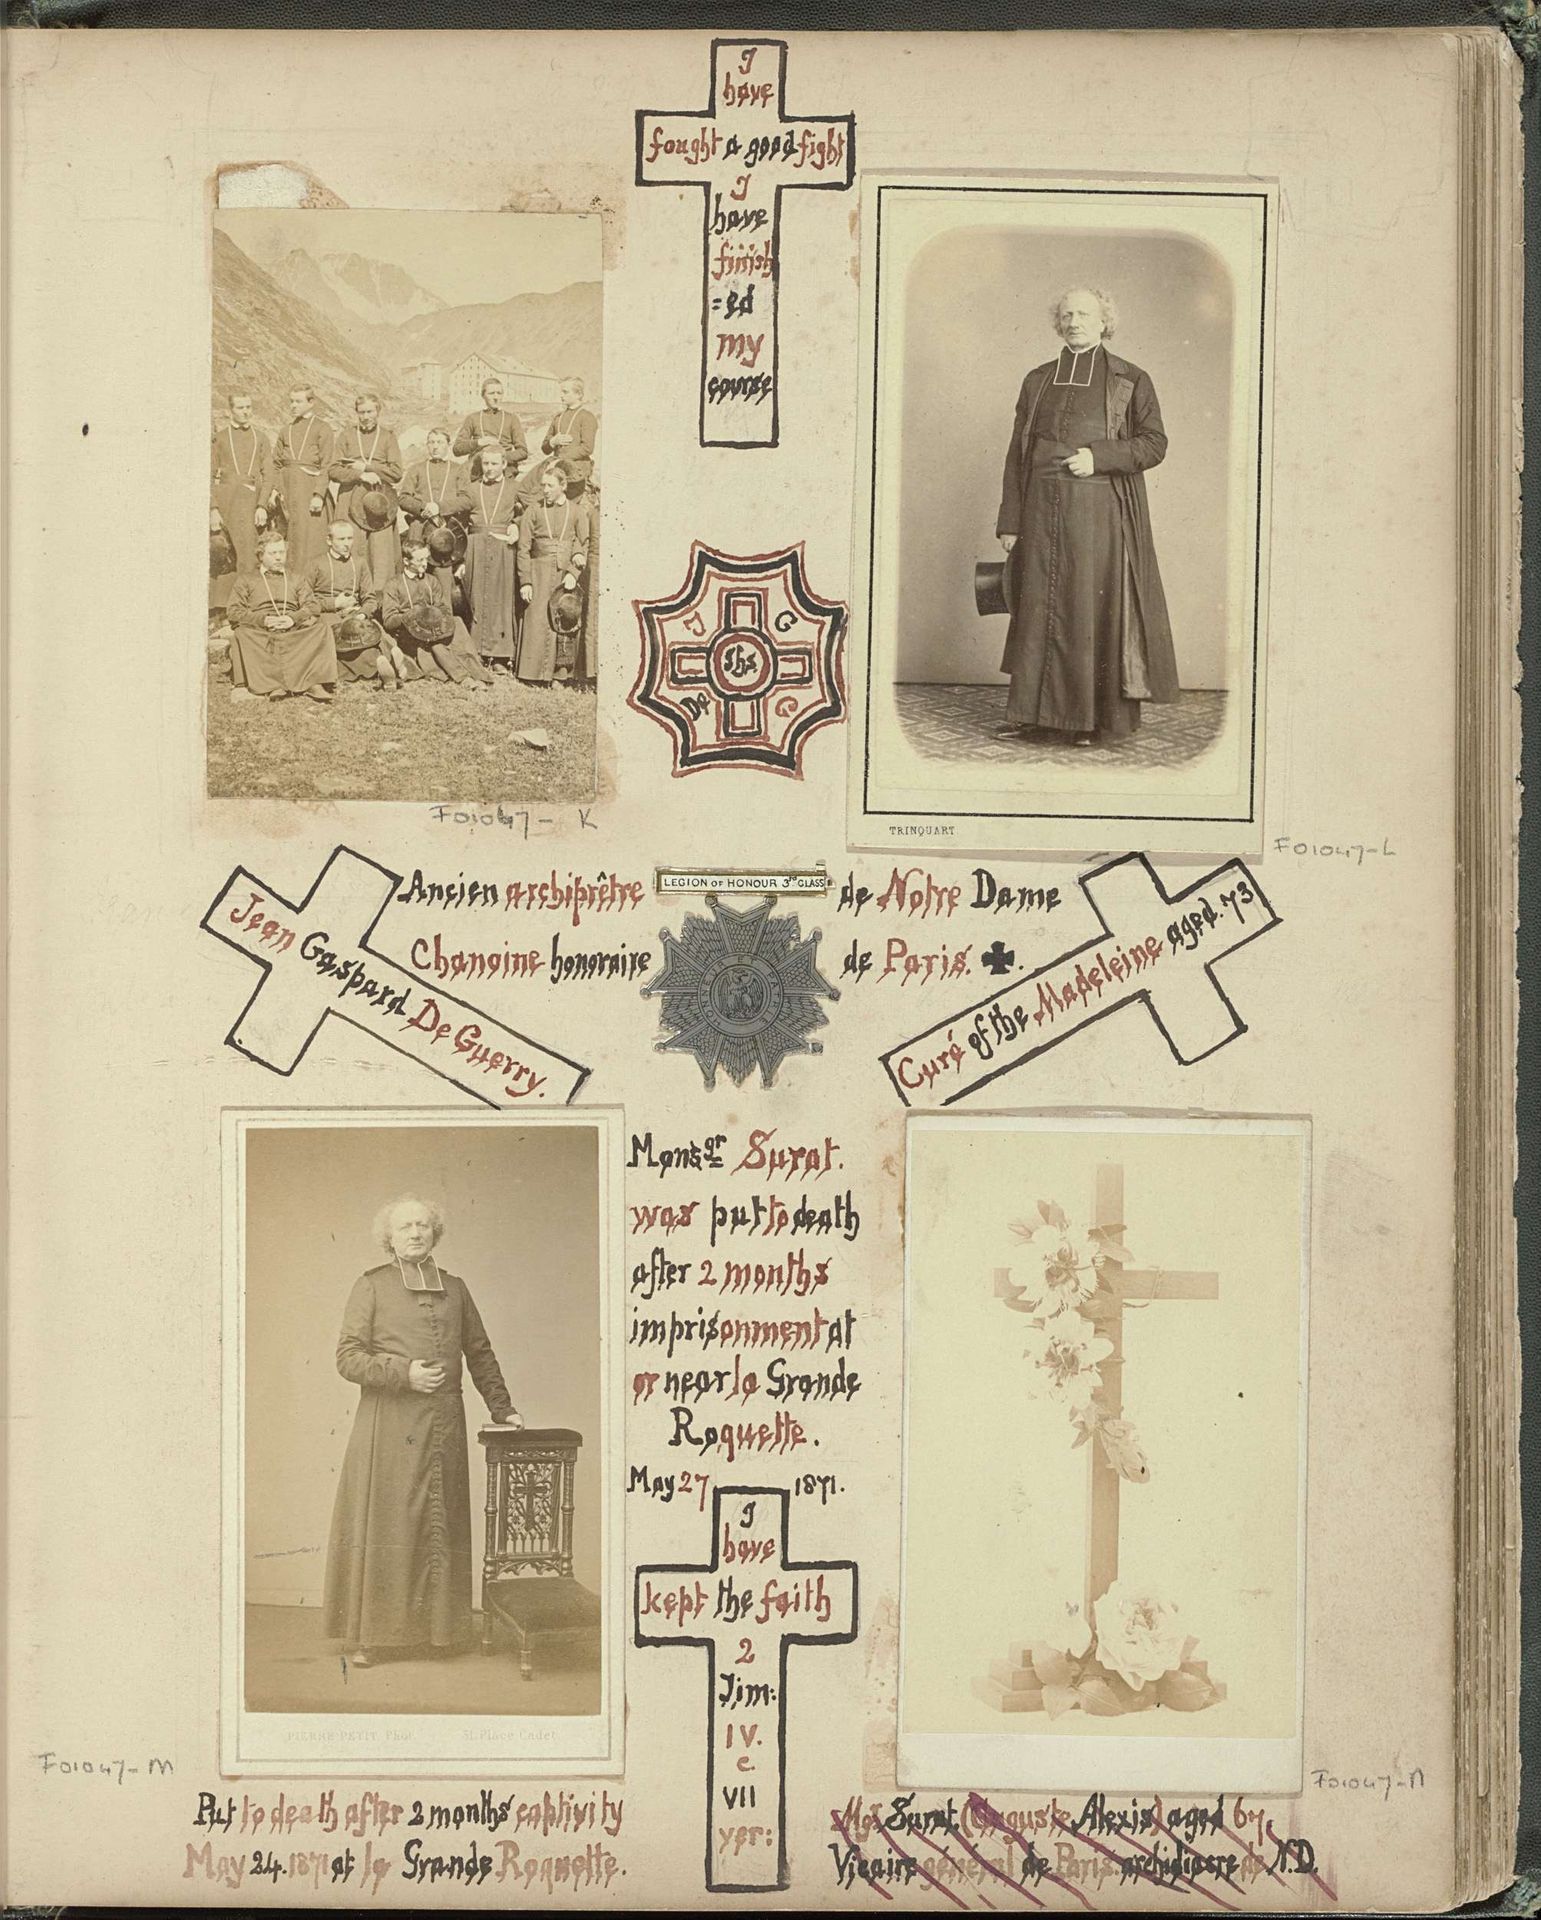 I
have
fought a good fight
I
have
finish
=ed
my
course
J G
Ihs.
De G
F01047- K
TRINQUART
F01047-L
Jean Gaspard De Guerry.
Ancien archiprêtre
Chanoine honoraire
LEGION OF HONOUR 3rd CLASS
de Notre Dame
de Paris. ✠.
Curé of the Madeleine aged. 73
Monsgr Surat.
was put to death
after 2 months
imprisonment at
or near la Grande
Roquette.
May 27 1871.
I
have
kept the faith
2
Tim:
IV.
c.
VII
ver:
PIERRE PETIT. Phot. 31. Place Cadet
F01047-M
Put to death after 2 months captivity
May 24. 1871 at la Grande Roquette.
F01047-N
Mgr. Surat. (Auguste Alexis) aged 67.
Vicaire général de Paris. archidiacre de N.D.